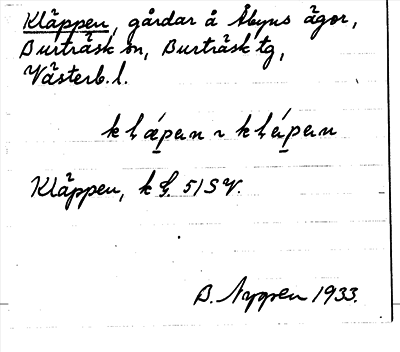 Kläppen, gårdar å Åbyns ägor,
Burträsk sn, Burträsk tg,
Västerb. l.
Kläppen, k 51 SV.
B. Nygren 1933.